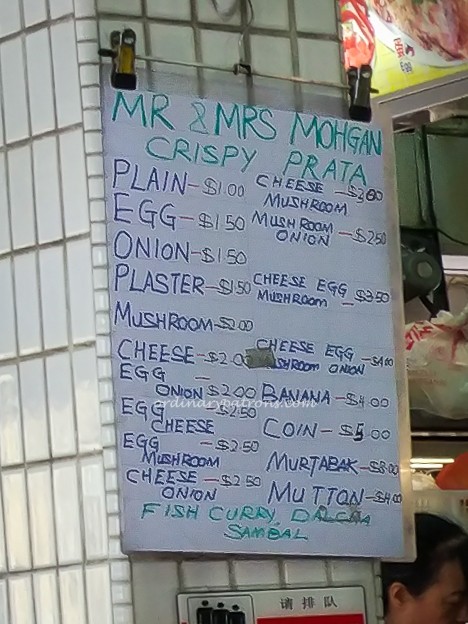 MR & MRS MOHGAN
CRISPY PRATA
PLAIN - $1.00
EGG - $1.50
ONION - $1.50
PLASTER - $1.50
MUSHROOM - $2.00
CHEESE - $2.00
EGG
ONION - $2.00
EGG
CHEESE - $2.50
EGG
MUSHROOM - $2.50
CHEESE
ONION - $2.50
CHEESE
MUSHROOM
MUSHROOM
ONION - $2.50
CHEESE EGG
MUSHROOM - $3.50
CHEESE EGG
MUSHROOM ONION - $4.00
BANANA - $4.00
COIN - $5.00
MURTABAK - $8.00
MUTTON - $4.00
FISH CURRY, DALCHA
SAMBAL
ordinarypatrons.com
请排队